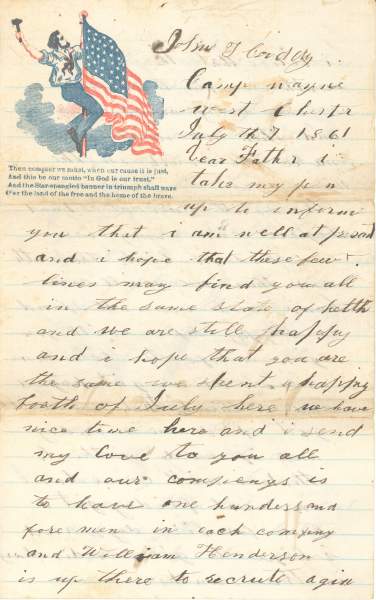 John T Coddy
Camp wayne
west Chester
July the 7 1861
Dear Father i
take my pen
up to inform
Then conquer we must, when our cause it is just,
And this be our motto "In God is our trust,"
And the Star-spangled banner in triumph shall wave
O'er the land of the free and the home of the brave.
you that i am well at present
and i hope that these few
lines may find you all
in the same state of helth
and we are still happy
and i hope that you are
the same we spent a happy
foath of July here we have
nice time here and i send
my love to you all
and our companys is
to have one hunders and
fore men in each company
and William Henderson
is up there to recrute agin